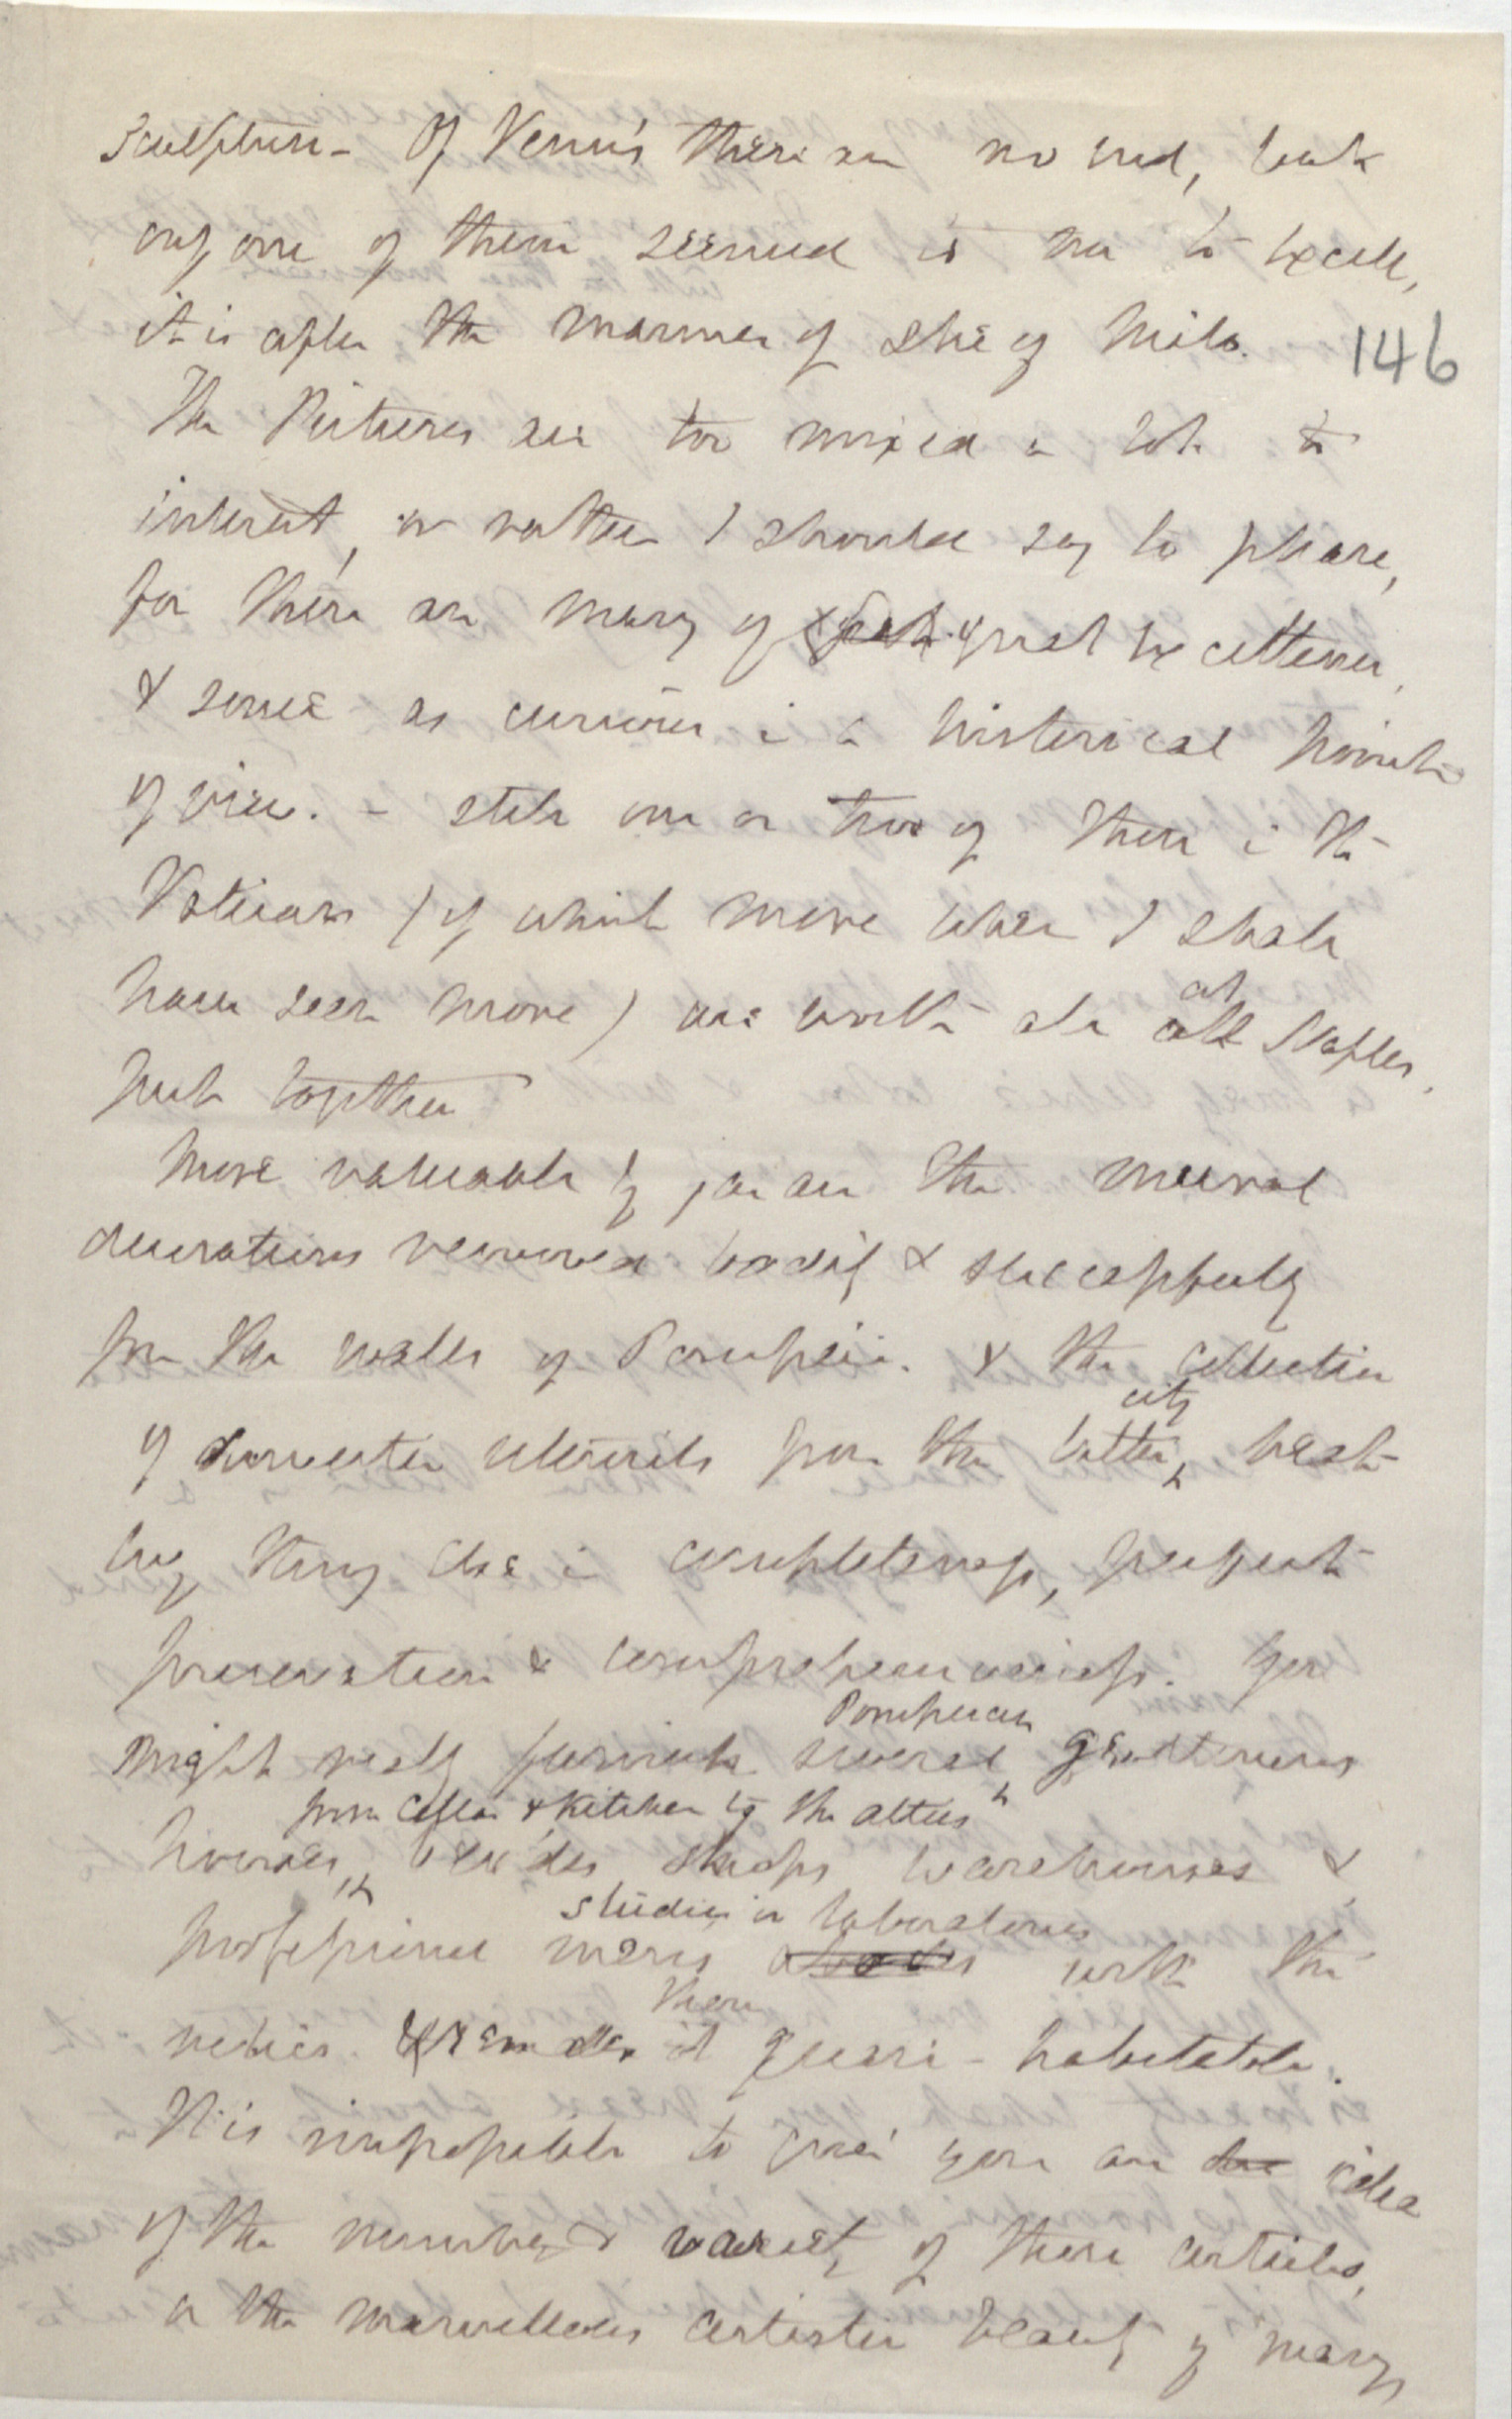 Sculpture - Of Venus's there are no end, but
only one of them seemed to me to excell,
it is after the manner of she of Milo.
146
The Pictures are too mixed a lot to
interest, or rather I should say to please,
for there are many of great excellence,
& some as curious in a historical point
of view. - still one or two of these in the
Vatican (of which more when I shall
have seen more) are worth all
at
Naples,
put together
More valuable by far are the mural
decorations removed bodily & successfully
from the walls of Pompeii. & the collection
city
of domestic utensils from the latter, beat
any thing else in completeness, perfect
preservation & comprehensiveness. You
Pompeian
might really furnish several gentlemens
from Cellar & kitchen to the attics
houses, besides shops warehouses &
studies or laboratories
professional mens abodes with the
them
relics. & render it quasi-habitable.
It is impossible to give you an idea
of the number & variety of these articles,
or the marvellous artistic beauty of many